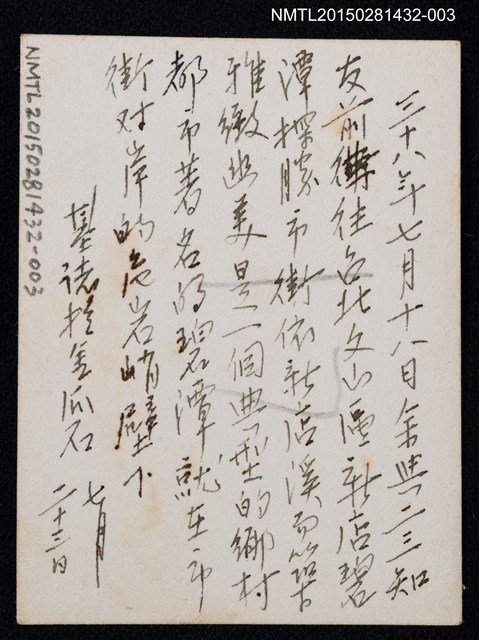 NMTL20150281432-003
NMTL20150281432-003
三十八年七月十八日余與二三知
友前往台北文山區新店碧
潭探勝市街依新店溪而築
雅緻幽美是一個典型的鄉村
都市著名的碧潭就在市
街对岸的危岩峭壁下
基德於金瓜石
七月
二十三日